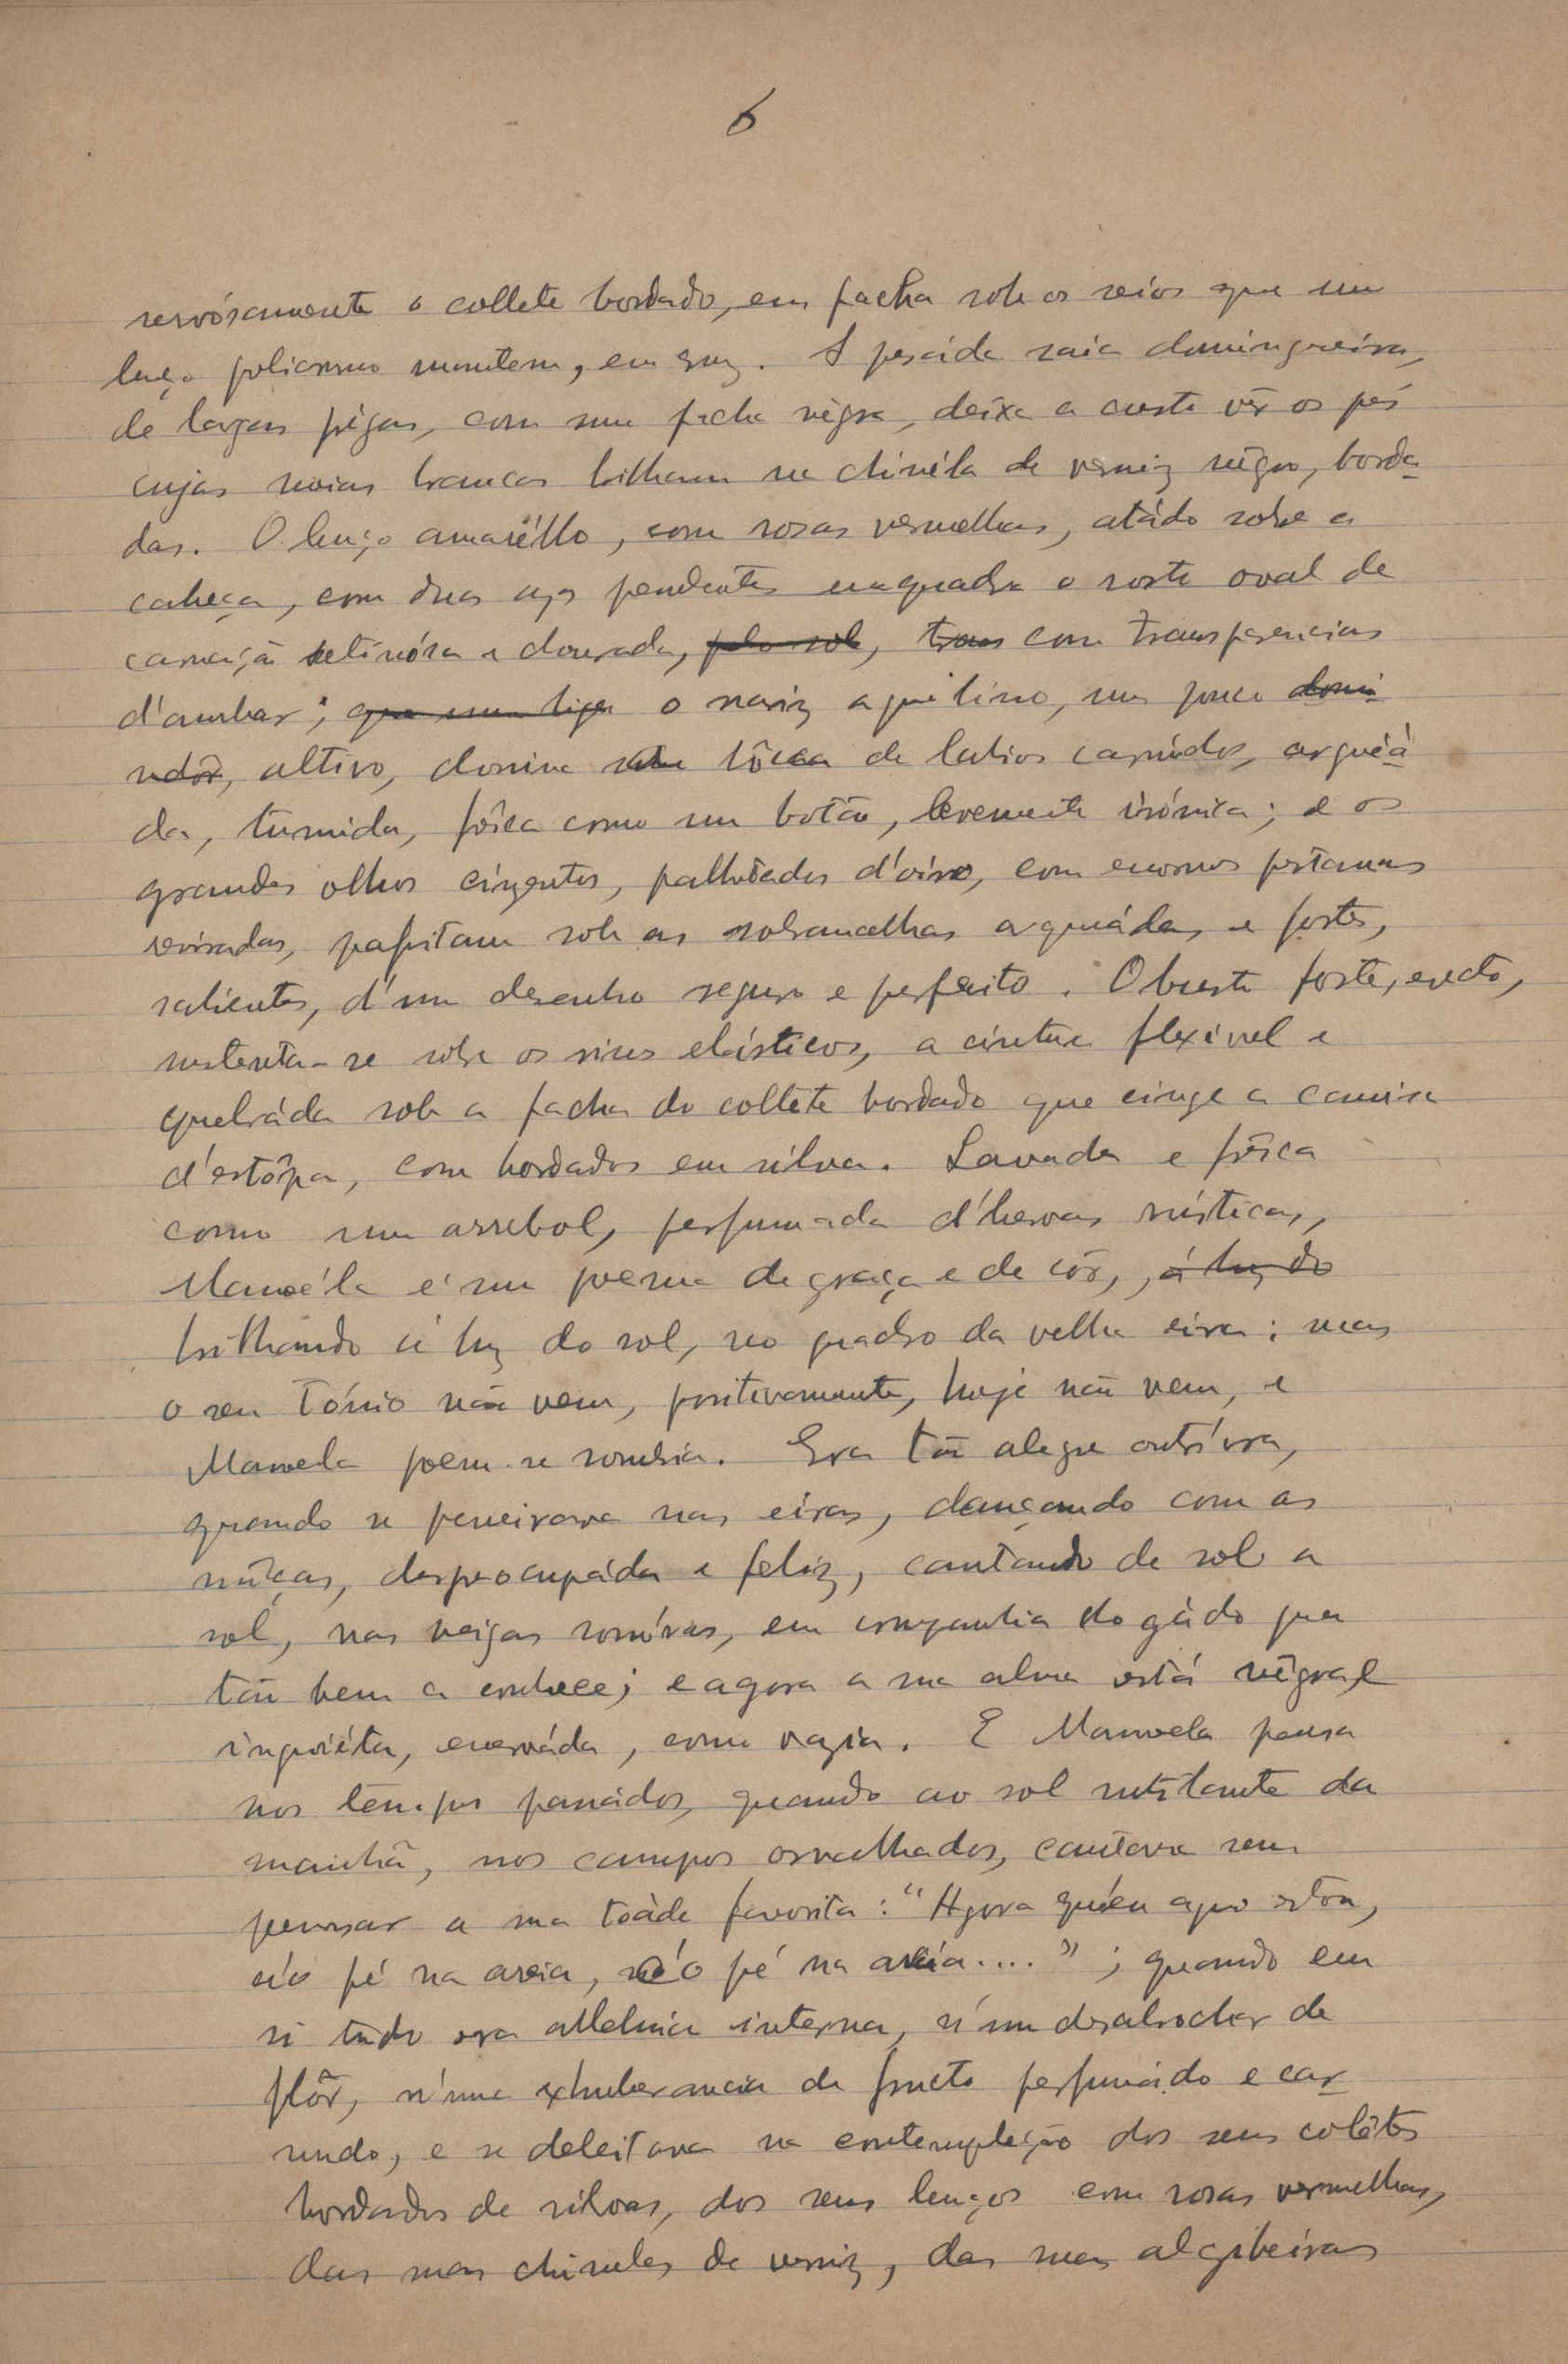 6
nervósamente o collete bordado, em facha sob os seios que um
lenço policromo mantem, em cruz. A pesáda saia domingueira,
de largas prégas, com uma facha négra, deixa a custo vêr os pés
cujas meias brancas brilham na chinéla de verniz nêgro, borda
das. O lenço amaréllo, com rosas vermelhas, atádo sobre a
cabeça, com duas azas pendentes enquadra o rosto oval de
carnaçã setinósa e dourada, pelo sol, trans com transparencias
d'ambar; que uma liga o nariz aquilino, um pouco domi
nadôr, altivo, domina uma bôcca de labios carnúdos, arqueá
da, tumida, frêsca como um botão, levemente irónica; e os
grandes olhos cinzentos, palhetados d'oiro, com enormes pestanas
reviradas, palpitam sob as sobrancelhas arqueádas e fortes,
salientes, d'um desenho seguro e perfeito. O busto forte, erecto,
sustenta-se sobre os rins elásticos, a cintura flexivel e
quebráda sob a facha do collête bordado que cinge a camisa
d'estôpa, com bordados em silva. Lavada e frêsca
como um arrebol, perfumada d'hervas rústicas,
Manoéla é um poema de graça e de côr, á luz do
brilhando á luz do sol, no quadro da velha eira; mas
o seu Tónio não vem, positivamente, hoje não vem, e
Manoela poem-se sombria. Era tão alegre outr'ora,
quando se peneirava nas eiras, dançando com as
môças, despreocupáda e feliz, cantando de sol a
sol, nas veigas sonóras, em companhia do gádo que
tão bem a conhece; e agora a sua alma está négra e
inquiéta, enerváda, como vazia. E Manoela pensa
nos tempos passádos, quando ao sol rutilante da
manhã, nos campos orvalhados, cantava sem
pensar a sua toáda favorita: "Agora quéu aqui estou,
c'o pé na areia, c'o pé na areia...."; quando em
si tudo era alleluia interna, n'um desabrochar de
flôr, n'uma exhuberancia de fructo perfumádo e car
nudo, e se deleitava na contemplação dos seus colêtes
bordados de silvas, dos seus lenços com rosas vermelhas,
das suas chinelas de verniz, das suas algibeiras